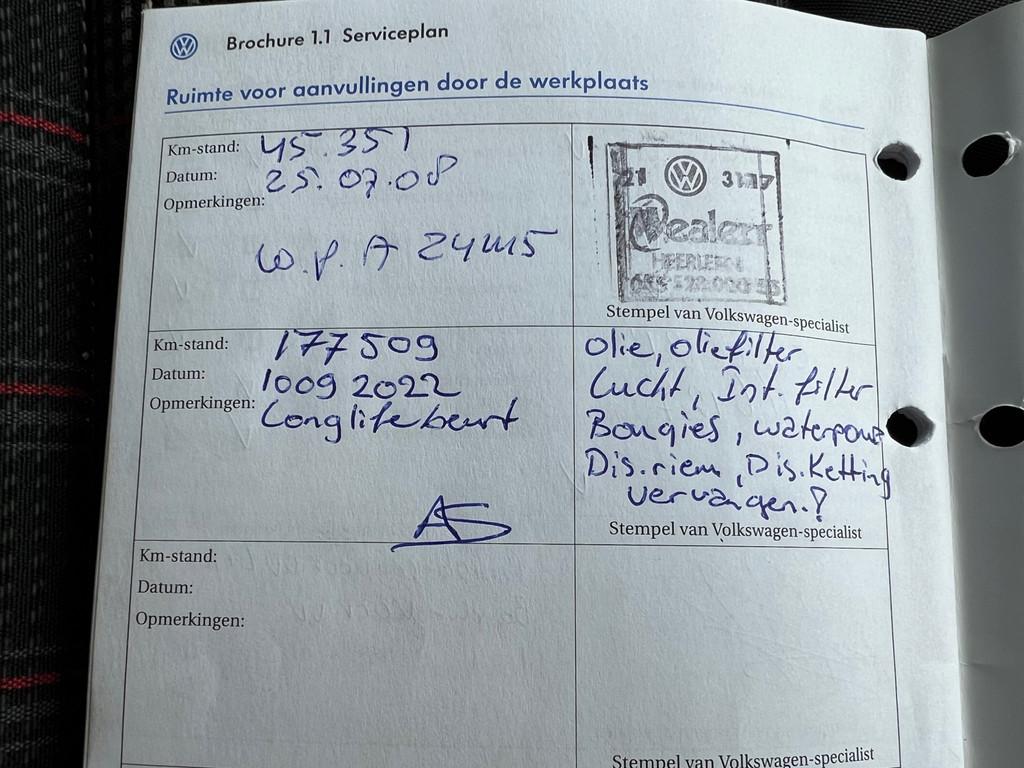 Brochure 1.1 Serviceplan
Ruimte voor aanvullingen door de werkplaats
Km-stand: 45.351
Datum: 25.07.08
Opmerkingen:
W.P.A 24U15
21 3117
HEERLEN
Stempel van Volkswagen-specialist
Km-stand: 177509
Datum: 10092022
Opmerkingen: Longlifebeurt
AS
olie, oliefilter
Lucht, Int. filter
Bougies, waterpomp
Dis.riem, Dis.Ketting
vervangen.?
Stempel van Volkswagen-specialist
Km-stand:
Datum:
Opmerkingen:
Stempel van Volkswagen-specialist